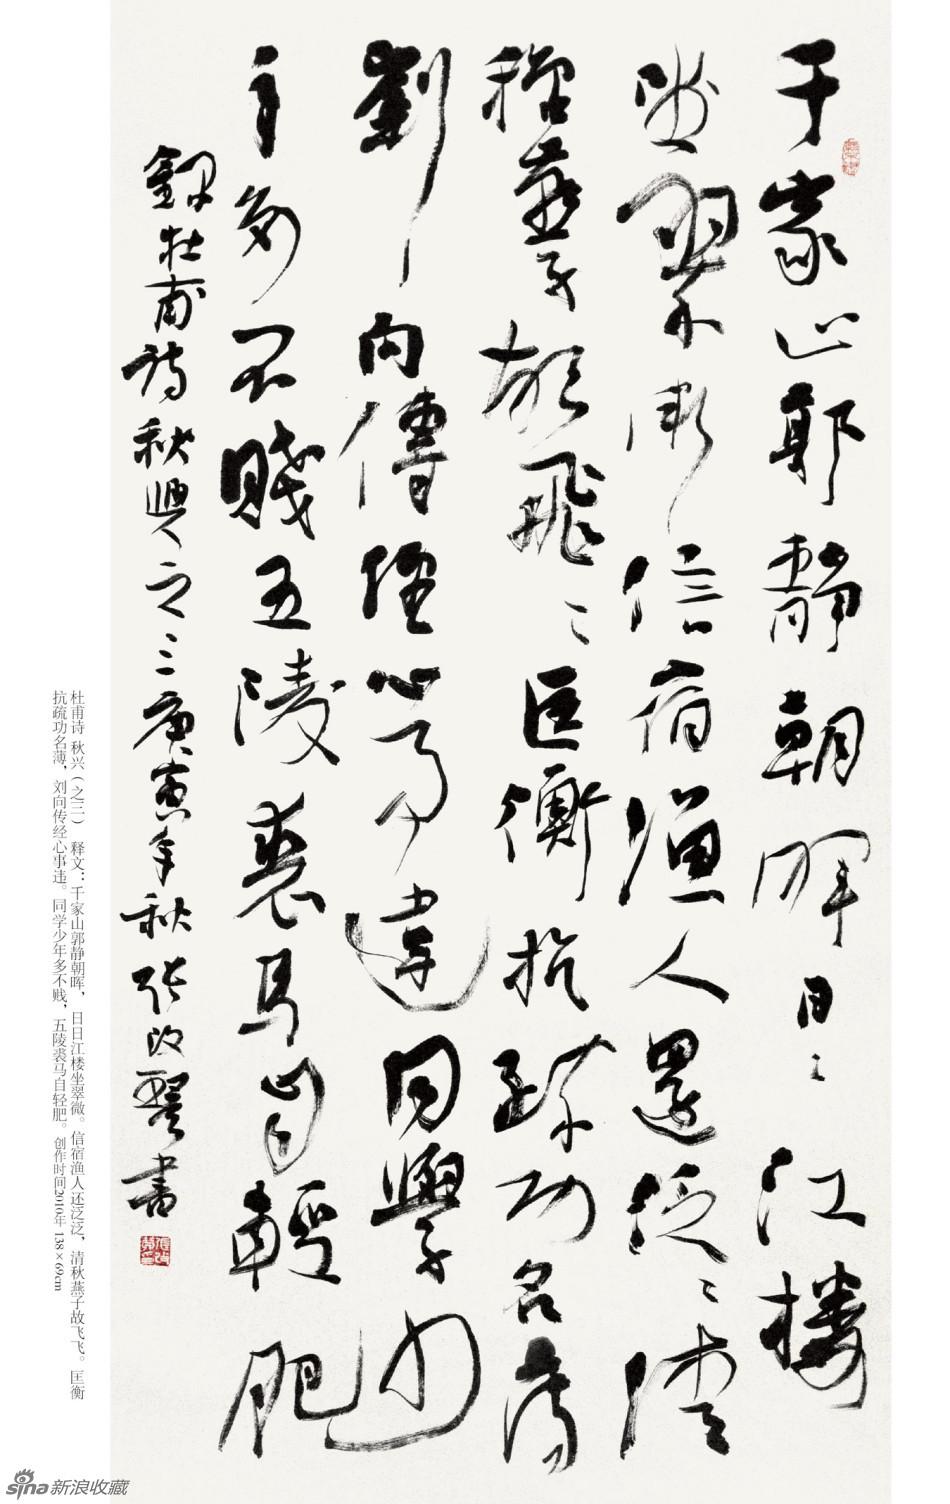 千家山郭静朝晖日〻江楼
坐翠微信宿渔人还泛〻清
秋燕子故飞〻匡衡抗疏功名薄
劉向傳經心事違同學少
年多不賤五陵裘馬自輕肥
録杜甫诗秋興之三庚寅年秋张改琴書
杜甫诗 秋兴(之三) 释文:千家山郭静朝晖,日日江楼坐翠微。信宿渔人还泛泛,清秋燕子故飞飞。匡衡
抗疏功名薄,刘向传经心事违。同学少年多不贱,五陵裘马自轻肥。创作时间2010年 138×69cm
sina新浪收藏